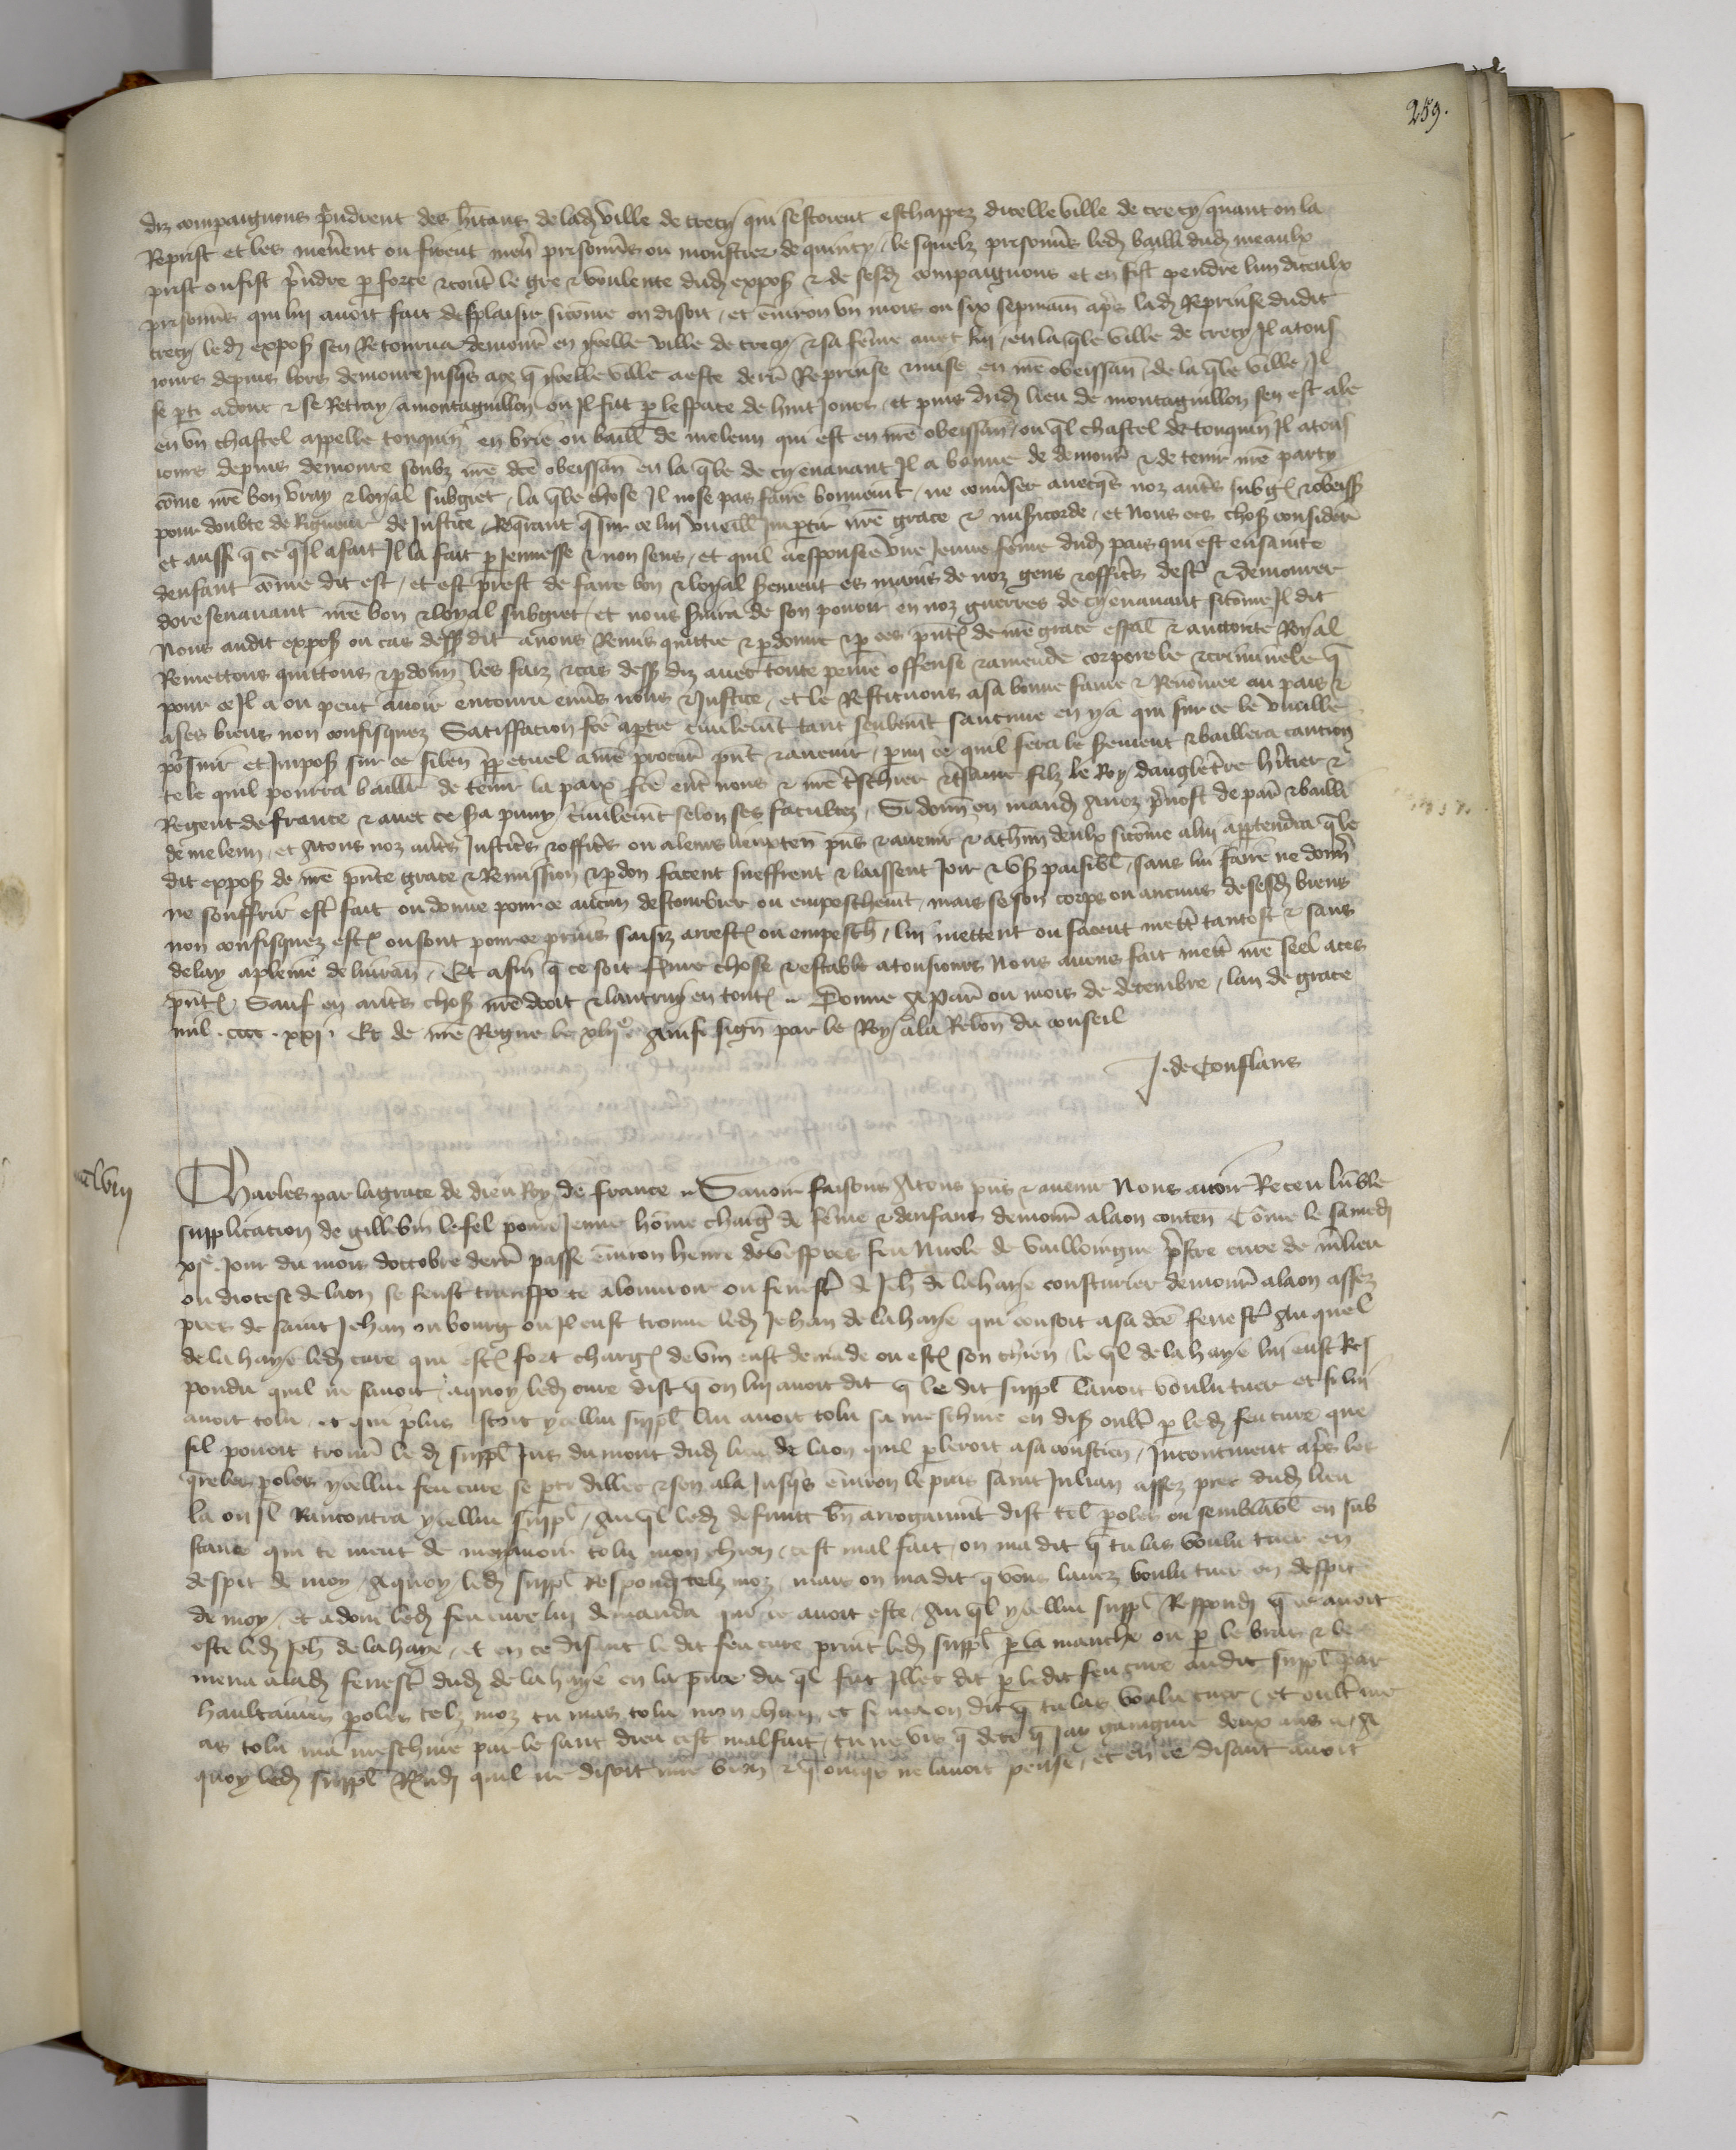 259.
diz compaignons prindrent des hitans de lad ville de crecy qui sestoient eschappez dicelle ville de crecy quant on la
Reprist et les menerent ou firent mener prisonnrs ou moustier de quincy / lesquelz prisonnrs led bailli dud meaulx
prist ou fist prendre par force et contre le gre et voulente dud expos et de sesd compaignons et en fist pendre lun diceulx
prisonnrs qui lui avoit fait desplaisir sicome on disoit / et environ un mois ou six sepmain apres lad Reprinse dudit
crecy led expos sen Retourna demourer en ycelle ville de crecy et sa feme avec lui / en laqle ville de crecy Il a tous
iours depuis lors demoure Jusqs ace q ycelle ville a este derr Reprinse et mise en nre obeissan / de laqle ville Il
se parti adonc et se Retray a montaguillon ou Il fut par lespace de huit Jours / et puis dud lieu de montaguillon sen est ale
en un chastel appelle touquin en brie ou baill de meleun qui est en nre obeissan / ouql chastel de touquin Il a tous
iours depuis demoure soubz nre dce obeissan en laqle de cy en avant Il a bonne de demourer et de tenir nre party
come nre bon vray et loyal subgiet / laqle chose Il nose pas faire bonnemt / ne converser avecqs noz autrs subg et obeiss
pour doubte de Rigueur de Justice Requerant q sur ce lui vueill Impartir nre grace et misericorde / et Nous ces chos consider
et aussi q ce qIl a fait Il la fait par Jeunesse et non sens / et quil a espousee une Jeune feme dud pais qui est ensainte
denfant come dit est / et est prest de faire bon et loyal serment es mains de noz gens et officrs destre et demourer
doresenavant nre bon et loyal subgiet / et nous servira de son povoir en noz guerres de cy en avant sicome Il dit
Nous audit expos ou cas dessus dit avons Remis quittie et pardonne et par ces pntes de nre grace espal et auctorite Royal
Remettons quittons et pardonn les faiz et cas dess diz avec toute peine offense et amende corporele et criminele q
pour ce Il a ou peut avoir encouru envers nous et Justice / et le Restituons a sa bonne fame et Renommee au pais et
a ses biens non confisquez Satisfacion fce a partie civilemt tant seulemt saucune en y a qui sur ce le vueille
poursuir et Impos sur ce silen perpetuel a nre procur pnt et avenir / parmi ce quil fera le serment et baillera caucion
tele quil pourra baillr de tenir la paix fce entre nous et nre treschier et tresame filz le Roy dangleterre hritier et
Regent de france et avec ce sera puny civilemt selon ses facultez / Si donn en mand aux prevost de par et bailli
de meleun et a tous noz autrs Justicrs et officrs ou a leurs lieuxten pns et avenir et a chun deulx sicome a lui appartendra q le
dit expos de nre pnte grace et Remission et pardon facent sueffrent et laissent Joir et us paisibl / sans lui faire ne donner
ne souffrir estre fait ou donne pour ce aucun destourbier ou empeschemt / mais se son corps ou aucuns de sesd biens
non confisquez est ou sont pour ce prins saisiz arrest ou empesch / lui mettent ou facent mettre tantost et sans
delay a pleine delivran / Et afin q ce soit ferme chose et estable a tousiours Nous avons fait mettre nre seel a ces
pntes / Sauf en autrs chos nre droit et lautruy en tout Donne a Paris ou mois de decembre / lan de grace
mil cccc xxj. Et de nre Regne le xlije Ainsi signe par le Roy a la Relon du conseil
J. de Conflans
Charles par la grace de dieu Roy de france Savoir faisons a tous pns et avenir Nous avoir Receu lumble
supplicacion de gillebin lefel povre Jeune home charg de feme et denfans demour a laon conten Come le samedi
xje Jour du mois doctobre derr passe environ heure de vespres feu Nicole de vaillongne prestre cure de
ou diocese de laon se feust transporte a louvroir ou fenestre de Jeh de la haye cousturier demour a laon assez
pres de saint Jehan ou bourg ou Il eust trouve led Jehan de la haye qui cousoit a sa dce fenestre Auquel
de la haye led cure qui est fort charg de vin eust demande ou est son chien / leql de la haye lui eust Res
pondu quil ne savoit / a quoy led cure dist q on lui avoit dit q le dit suppl lavoit voulu tuer et si lui
avoit tolu / et qui plus estoit ycellui suppl lui avoit tolu sa meschine en dis oultre par led feu cure que
sil povoit trouver led suppl Jus du mont dud lieu de laon quil parleroit a sa conscien / Incontinent apres les
qreles paroles ycellui feu cure se parti dillec et sen ala Jusqs environ le puis saint Julian assez pres dud lieu
la ou Il Rancontra ycellui suppl / Auql led deffunct bn arrogamnt dist tel paroles ou semblabl en sub
stance qui te meut de moy avoir tolu mon chien / cest mal fait / on ma dit q tu las voulu tuer en
despit de moy / A quoy led suppl respond telz moz / mais on ma dit q vous lavez voulu tuer en despit
de moy / et adonc led feu cure lui demanda qui ce avoit este / Auql ycellui suppl Respond q ce avoit
este led Jeh de la haye / et en ce disant le dit feu cure print led suppl par la manche ou par le bras et le
mena a lad fenestre dud de la haye en la pnce du ql fut Illec dit par le dit feu cure audit suppl par
haultaines paroles telz moz tu mas tolu mon chien et si ma on dit q tu las voulu tuer / et oultre me
as tolu ma meschine par le sanc dieu cest mal fait / tu ne vis q de ce q Jay gaaigne deux ans a / A
quoy led suppl Rnd quil ne disoit mie bien et q onques ne lavoit pense / et en ce disant avoit